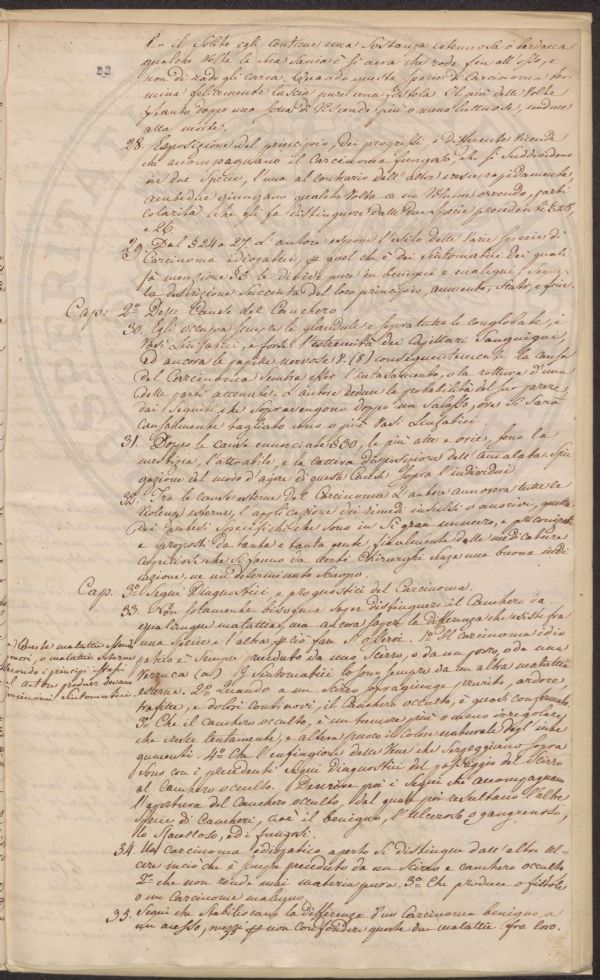 Per il solito egli contiene una sostanza cotennosa o lardacea
qualche volta la sua sanie è sì acra che rode fin all'osso, e
non di rado gli carea. Quando questa specie di Carcinoma ter
mina felicemente lascia pure una fistola. Il più delle volte
doppo una serie di vicende più o meno luttuose, conduce
alla morte.
28. Esposizione del principio, dei progressi, e differente vicende
che accompagnano il Carcinoma fungoso, che si suddividono
in due specie, l'una al contrario dell'altra cresce rapidamente,
ambedue giungano qualche volta a un volume orrendo, parti
colarità che gli fa distinguere dalle due specie precedenti § 25,
e 26.
29. Dal § 24 a 27. L'autore espone l'esito delle varie specie di
Carcinoma idiopatice, quel che è dei Sintomatici dei quali
fà menzione § 5 le divide pure in benigni e maligni, segue
la descrizione succinta del loro principio, aumento, stato, e fine.
Cap: 2º Delle Cause del Canchero
30. Egli occupa sempre le glandule e sopratutto le conglobate, i
vasi Linfatici, e forse l'estremità dei Capillari Sanguigni,
ed ancora le papille nervose V. (8) conseguentemente la causa
del Carcinoma sembra esser l'intasamento, o la rottura d'una
delle parti accennate. L'autore deduce la probabilità del suo parere
dai seguiti che sopravengono doppo un salasso, ove si sarà
casualmente tagliato uno o più vasi Linfatici.
31. Doppo le cause enunciate § 30, le più altre e orie, sono la
mestizia, l'attrabile, e la cattiva disposizione dell'Amalata. Spie
gazione del modo d'agire di queste Cause sopra l'individui
32. Tra le cause esterne del Carcinoma L'autore annovera tutte le
violenze esterne, l'applicazione dei rimedi inutili o nocivi, quella
dei pretesi specifichi che sono in sì gran numero, e preconizati
e proposti da tanta e tanta gente, finalmente delle medicature
che si fanno da certi Chirurghi senza una buona indi
cazione, ne un determinato scuopo.
Cap. 3º Segni Diagnostici, e prognostici del Carcinoma.
33. Non solamente bisogna saper distinguere il Canchero da
qualunque malattia, ma ancora sapere la differenza che esiste fra
una specie e l'altra, ciò fan i. 1º Il Carcinoma idio
patico è sempre preceduto da uno Scirro, o da un porro, o da una
Verruca (a) I Sintomatici lo son sempre da un'altra malattia
esterna. 2º Quando a un scirro sopragiunge prurito, ardore,
trafitte, e dolori continovi, il Canchero occulto, è quasi confermato.
3º Che il canchero occulto, è un tumore più o meno irregolare,
che cresce lentamente, e altera puoco il Colore naturale degl'inte
gumenti. 4º Che l'enfiagione delle Vene che serpeggiano sopra
sono con i precedenti segni diagnostici del passaggio del Scirro
al Canchero occulto. Descrive poi i segni che accompagnano
l'apertura del Canchero occulto, dal quale poi resultano l'altre
specie di Cancheri, cioè il benigno, l'Ulceroso o gangrenoso,
lo, ed i fungosi.
(a) Queste malattie sono
o malattie esterne
secondo i principi stessi
l'autore produr devono
Carcinomi Sintomatici
34. Un Carcinoma ediopatico aperto si distingue dall'altre ul
cere in ciò che è sempre preceduto da un Scirro e canchero occulto
2º che non rende mai materia pura. 3º Che produce o fistole
o un Carcinoma maligno.
35. Segni che stabiliscano la differenza d'un Carcinoma benigno a
un ascesso, mezzi p non confondere queste due malattie fra loro.